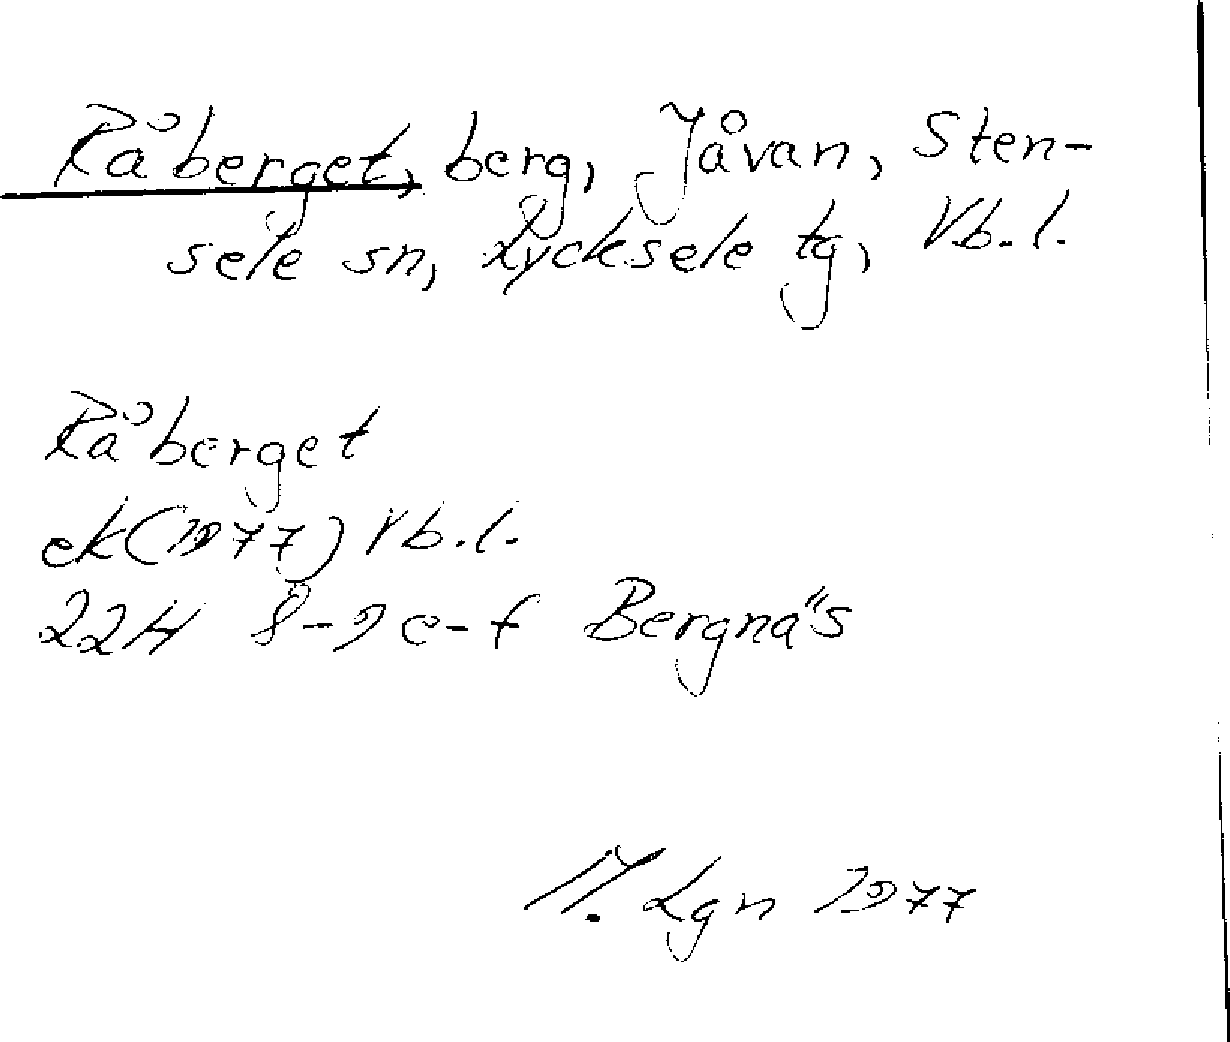 Råberget, berg, Jåvan, Sten-
sele sn, Lycksele tg, Vb.l.
Råberget
ek (1977) Vb.l.
22H 8-9 e-f Bergnäs
M. Lgn 1977